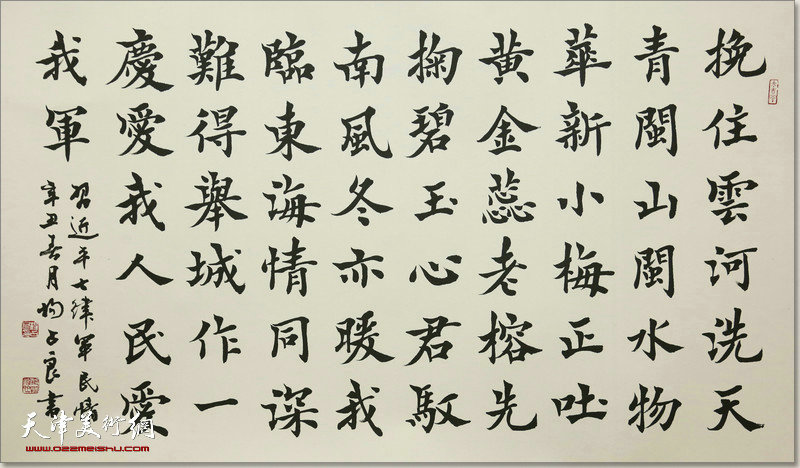 挽住雲河洗天
青閩山閩水物
華新小梅正吐
黄金蕊老榕先
掬碧玉心君馭
南風冬亦暖我
臨東海情同深
難得舉城作一
慶愛我人民愛
我軍
習近平七律軍民情
辛丑春月 子良書
天津美術網
www.022meishu.com